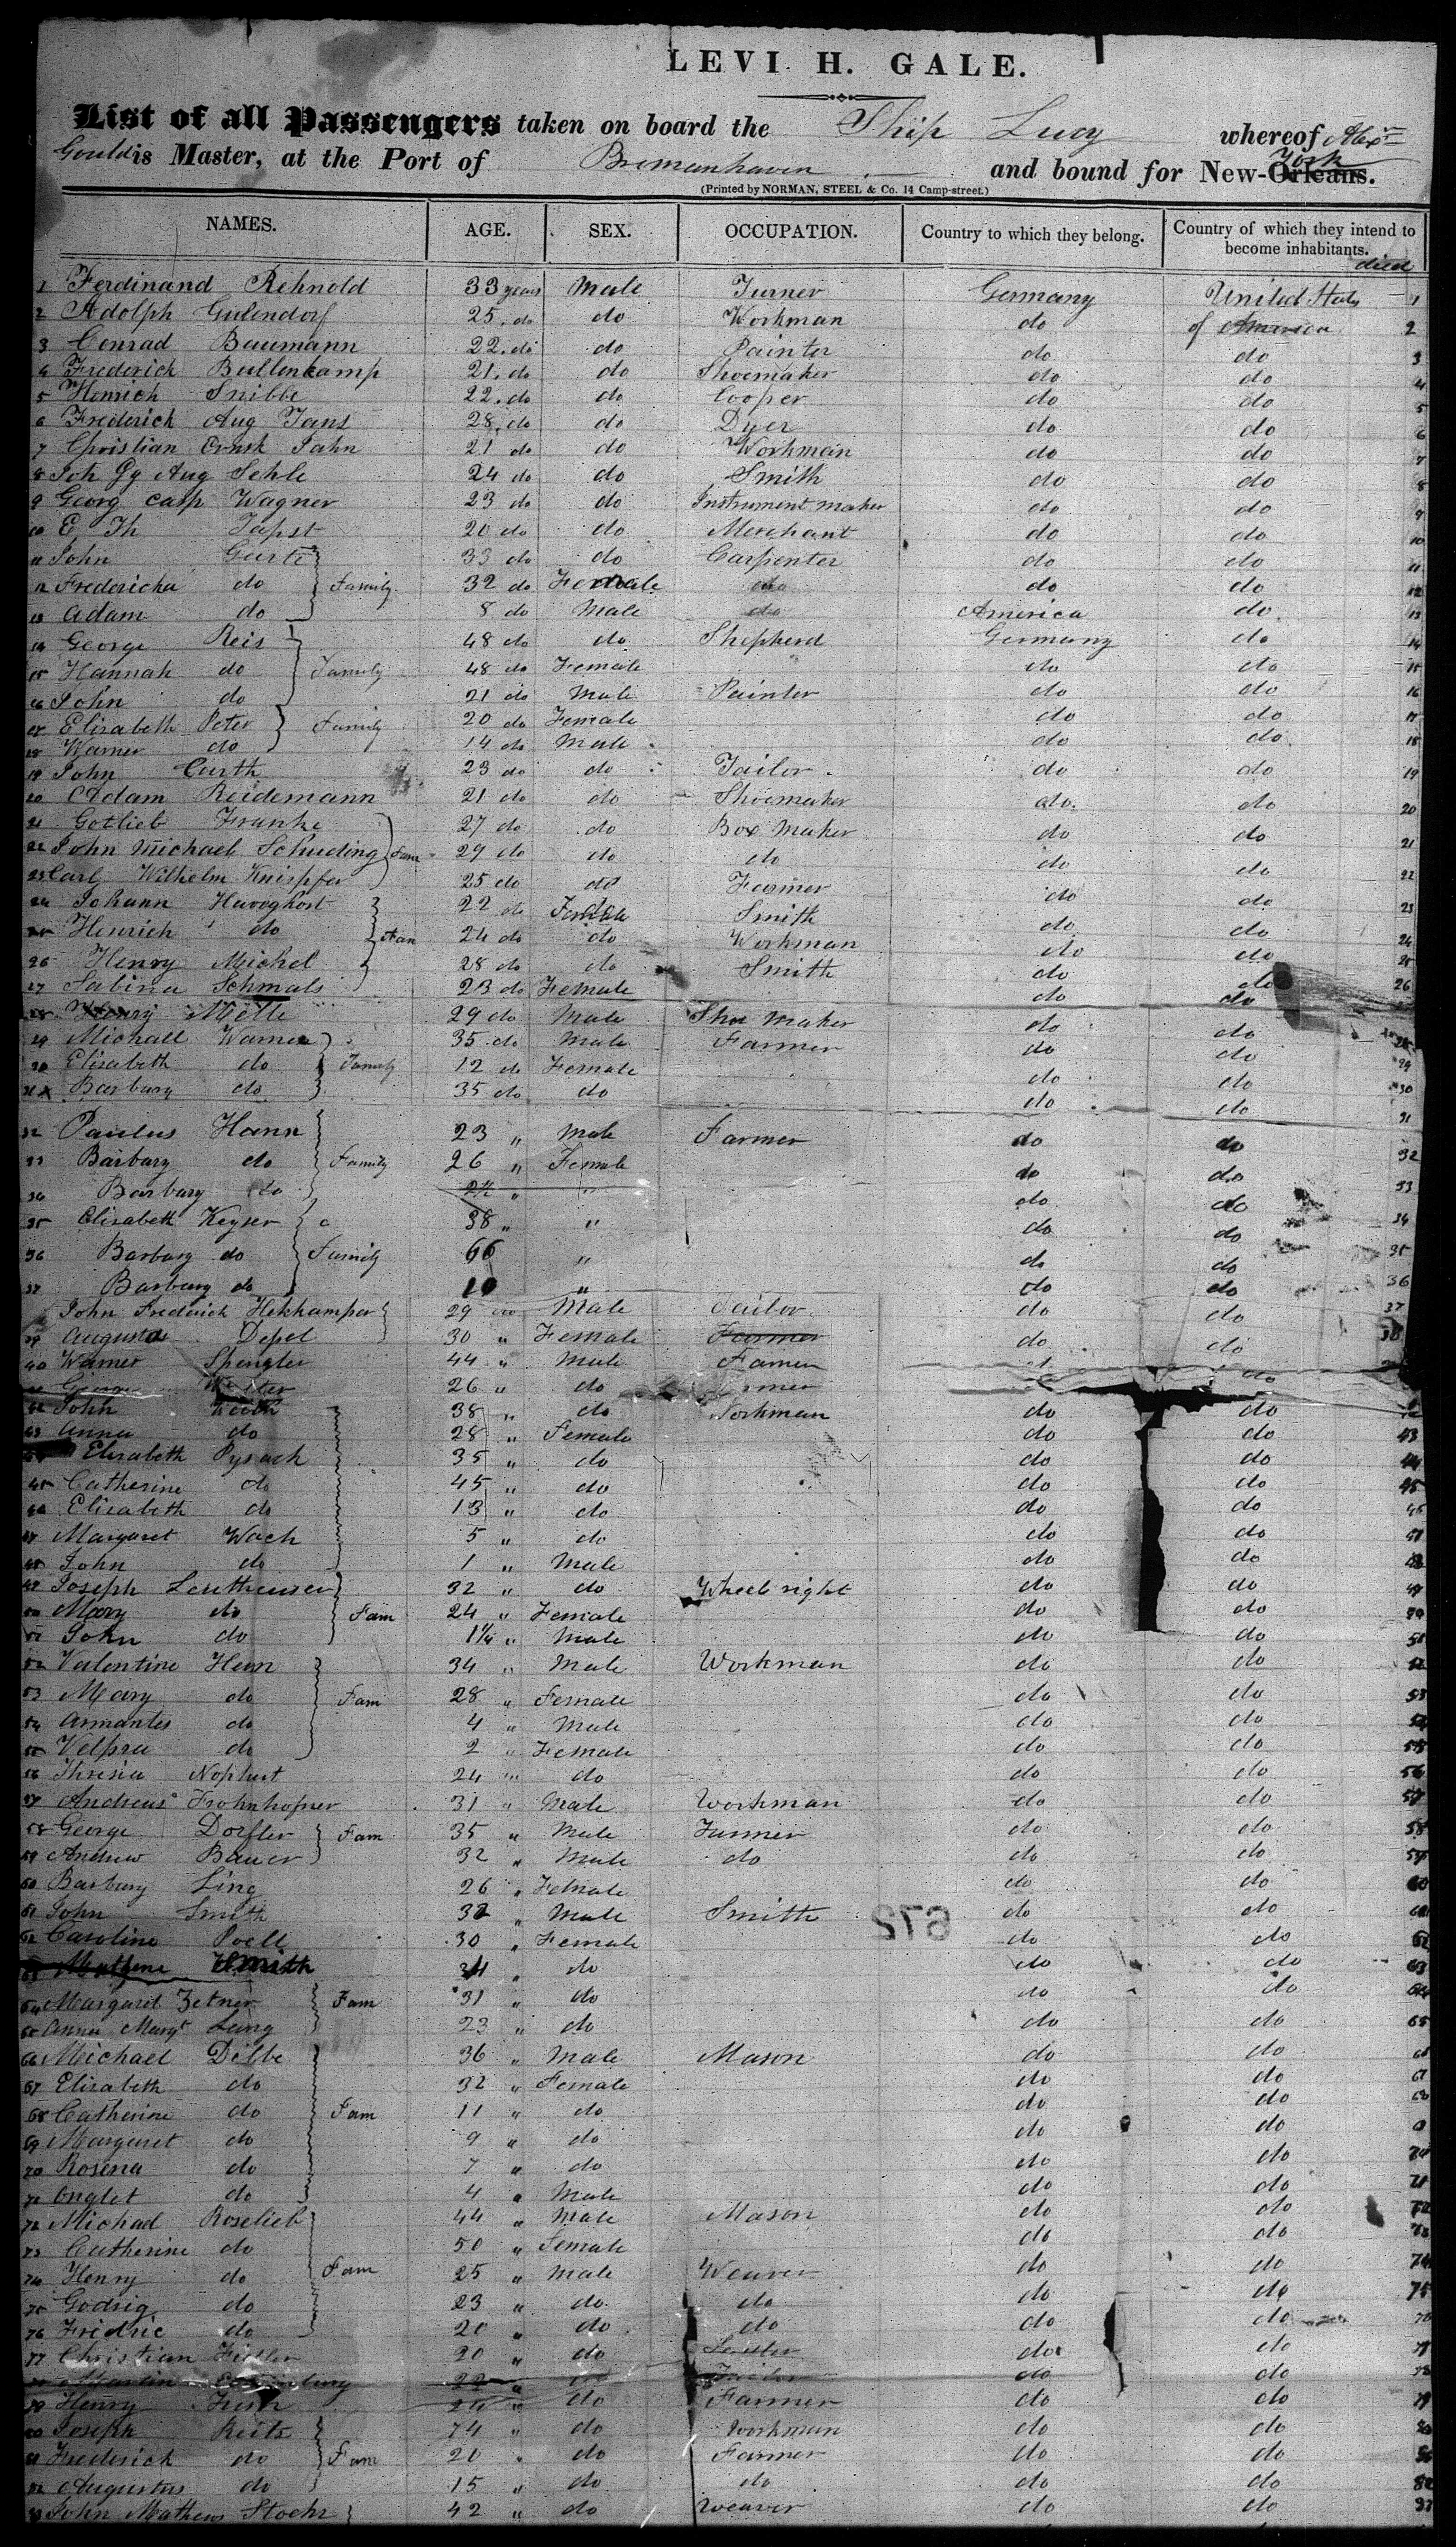 LEVI H. GALE.
List of all Passengers taken on board the Ship Lucy whereof Alexr
Gould is Master, at the Port of Bremenhaven and bound for New-Orleans. York
(Printed by NORMAN, STEEL & Co. 14 Camp-street.)
NAMES. AGE. SEX. OCCUPATION. Country to which they belong. Country of which they intend to become inhabitants.
died
1 Ferdinand Rehnold 33 years Male Turner Germany United States 1
2 Adolph Gulendorf 25. do do Workman do of America 2
3 Conrad Baumann 22. do do Painter do do 3
4 Frederich Bullenkamp 21. do do Shoemaker do do 4
5 Henrich Snibbe 22. do do Cooper do do 5
6 Frederich Aug Jans 28. do do Dyer do do 6
7 Christian Ernst Jahn 21 do do Workman do do 7
8 Joh Gg Aug Sehle 24 do do Smith do do 8
9 Georg Casp Wagner 23 do do Instrument maker do do 9
10 E Th Japst 20 do do Merchant do do 10
11 John Garte 33 do do Carpenter do do 11
12 Fredericha do Family 32 do Female do do do 12
13 Adam do 8 do Male do America do 13
14 George Reis 48 do do Shepherd Germany do 14
15 Hannah do Family 48 do Female do do 15
16 John do 21 do Male Painter do do 16
17 Elisabeth Peter Family 20 do Female do do 17
18 Warner do 14 do Male do do 18
19 John Curth 23 do do Tailor do do 19
20 Adam Reidemann 21 do do Shoemaker do do 20
21 Gotlieb Franke 27 do do Box Maker do do 21
22 John Michael Schuding Fam 29 do do do do do 22
23 Carl Wilhelm Knispfer 25 do do Farmer do do 23
24 Johann Havoghost 22 do Female Smith do do 24
25 Henrich do Fam 24 do do Workman do do 25
26 Henry Michel 28 do do Smith do do 26
27 Sabina Schmals 23 do Female do do
28 Henry Mette 29 do Male Shoe Maker do do 28
29 Michael Warner 35 do Male Farmer do do 29
30 Elisabeth do Family 12 do Female do do 30
31 Barbary do 35 do do do do 31
32 Paulus Hann 23 " Male Farmer do do 32
33 Barbary do Family 26 " Female do do 33
34 Barbary do 2½ " " do do 34
35 Elisabeth Keyser 38 " " do do 35
36 Barbary do Family 66 " do do 36
37 Barbary do 10 " do do 37
John Frederick Hekkamper 29 do Male Tailor do do 38
39 Augusta Depel 30 " Female Farmer do do
40 Warner Spengler 44 " Male Farmer do
26 " do
42 John 38 " do Workman do do
43 Anna do 28 " Female do do 43
Elisabeth Pysach 35 " do do do 44
45 Catherine do 45 " do do do 45
46 Elisabeth do 13 " do do do 46
47 Margaret Wach 5 " do do do 47
48 John do 1 " Male do do 48
49 Joseph Leutheuser 32 " do Wheel right do do 49
50 Mary do Fam 24 " Female do do 50
51 John do 1¼ " Male do do 51
52 Valentine Hem 34 " Male Workman do do 52
53 Mary do Fam 28 " Female do do 53
54 Armantes do 4 " Male do do 54
55 Velpra do 2 " Female do do 55
56 Thresia Nophut 24 " do do do 56
57 Andreus Frohnhofner 31 " Male Workman do do 57
58 George Dorfler Fam 35 " Male Farmer do do 58
59 Andrew Bauer 32 " Male do do do 59
60 Barbary Ling 26 " Female do do 60
61 John Smith 32 " Male Smith do do 61
672
62 Caroline Poell 30 " Female do do 62
63 Smith 34 " do do do 63
64 Margaret Zetner Fam 31 " do do do 64
65 Anna Margt Lang 23 " do do do 65
66 Michael Dolbe 36 " Male Mason do do 66
67 Elisabeth do 32 " Female do do 67
68 Catherine do Fam 11 " do do do 68
69 Margaret do 9 " do do do
70 Rosena do 7 " do do do 70
71 Englet do 4 " Male do do 71
72 Michael Roselieb 44 " Male Mason do do 72
73 Catherine do 50 " Female do do 73
74 Henry do Fam 25 " Male Weaver do do 74
75 Godrig do 23 " do do do do 75
76 Fridric do 20 " do do do do 76
77 Christian Fidler 20 " do do do 77
Martin 22 " do do do
79 Henry 24 " do Farmer do do 79
80 Joseph Reits 74 " do Workman do do 80
81 Frederick do Fam 20 " do Farmer do do
82 Augustus do 15 " do do do do 82
83 John Mathews Stoehr 42 " do Weaver do do 83